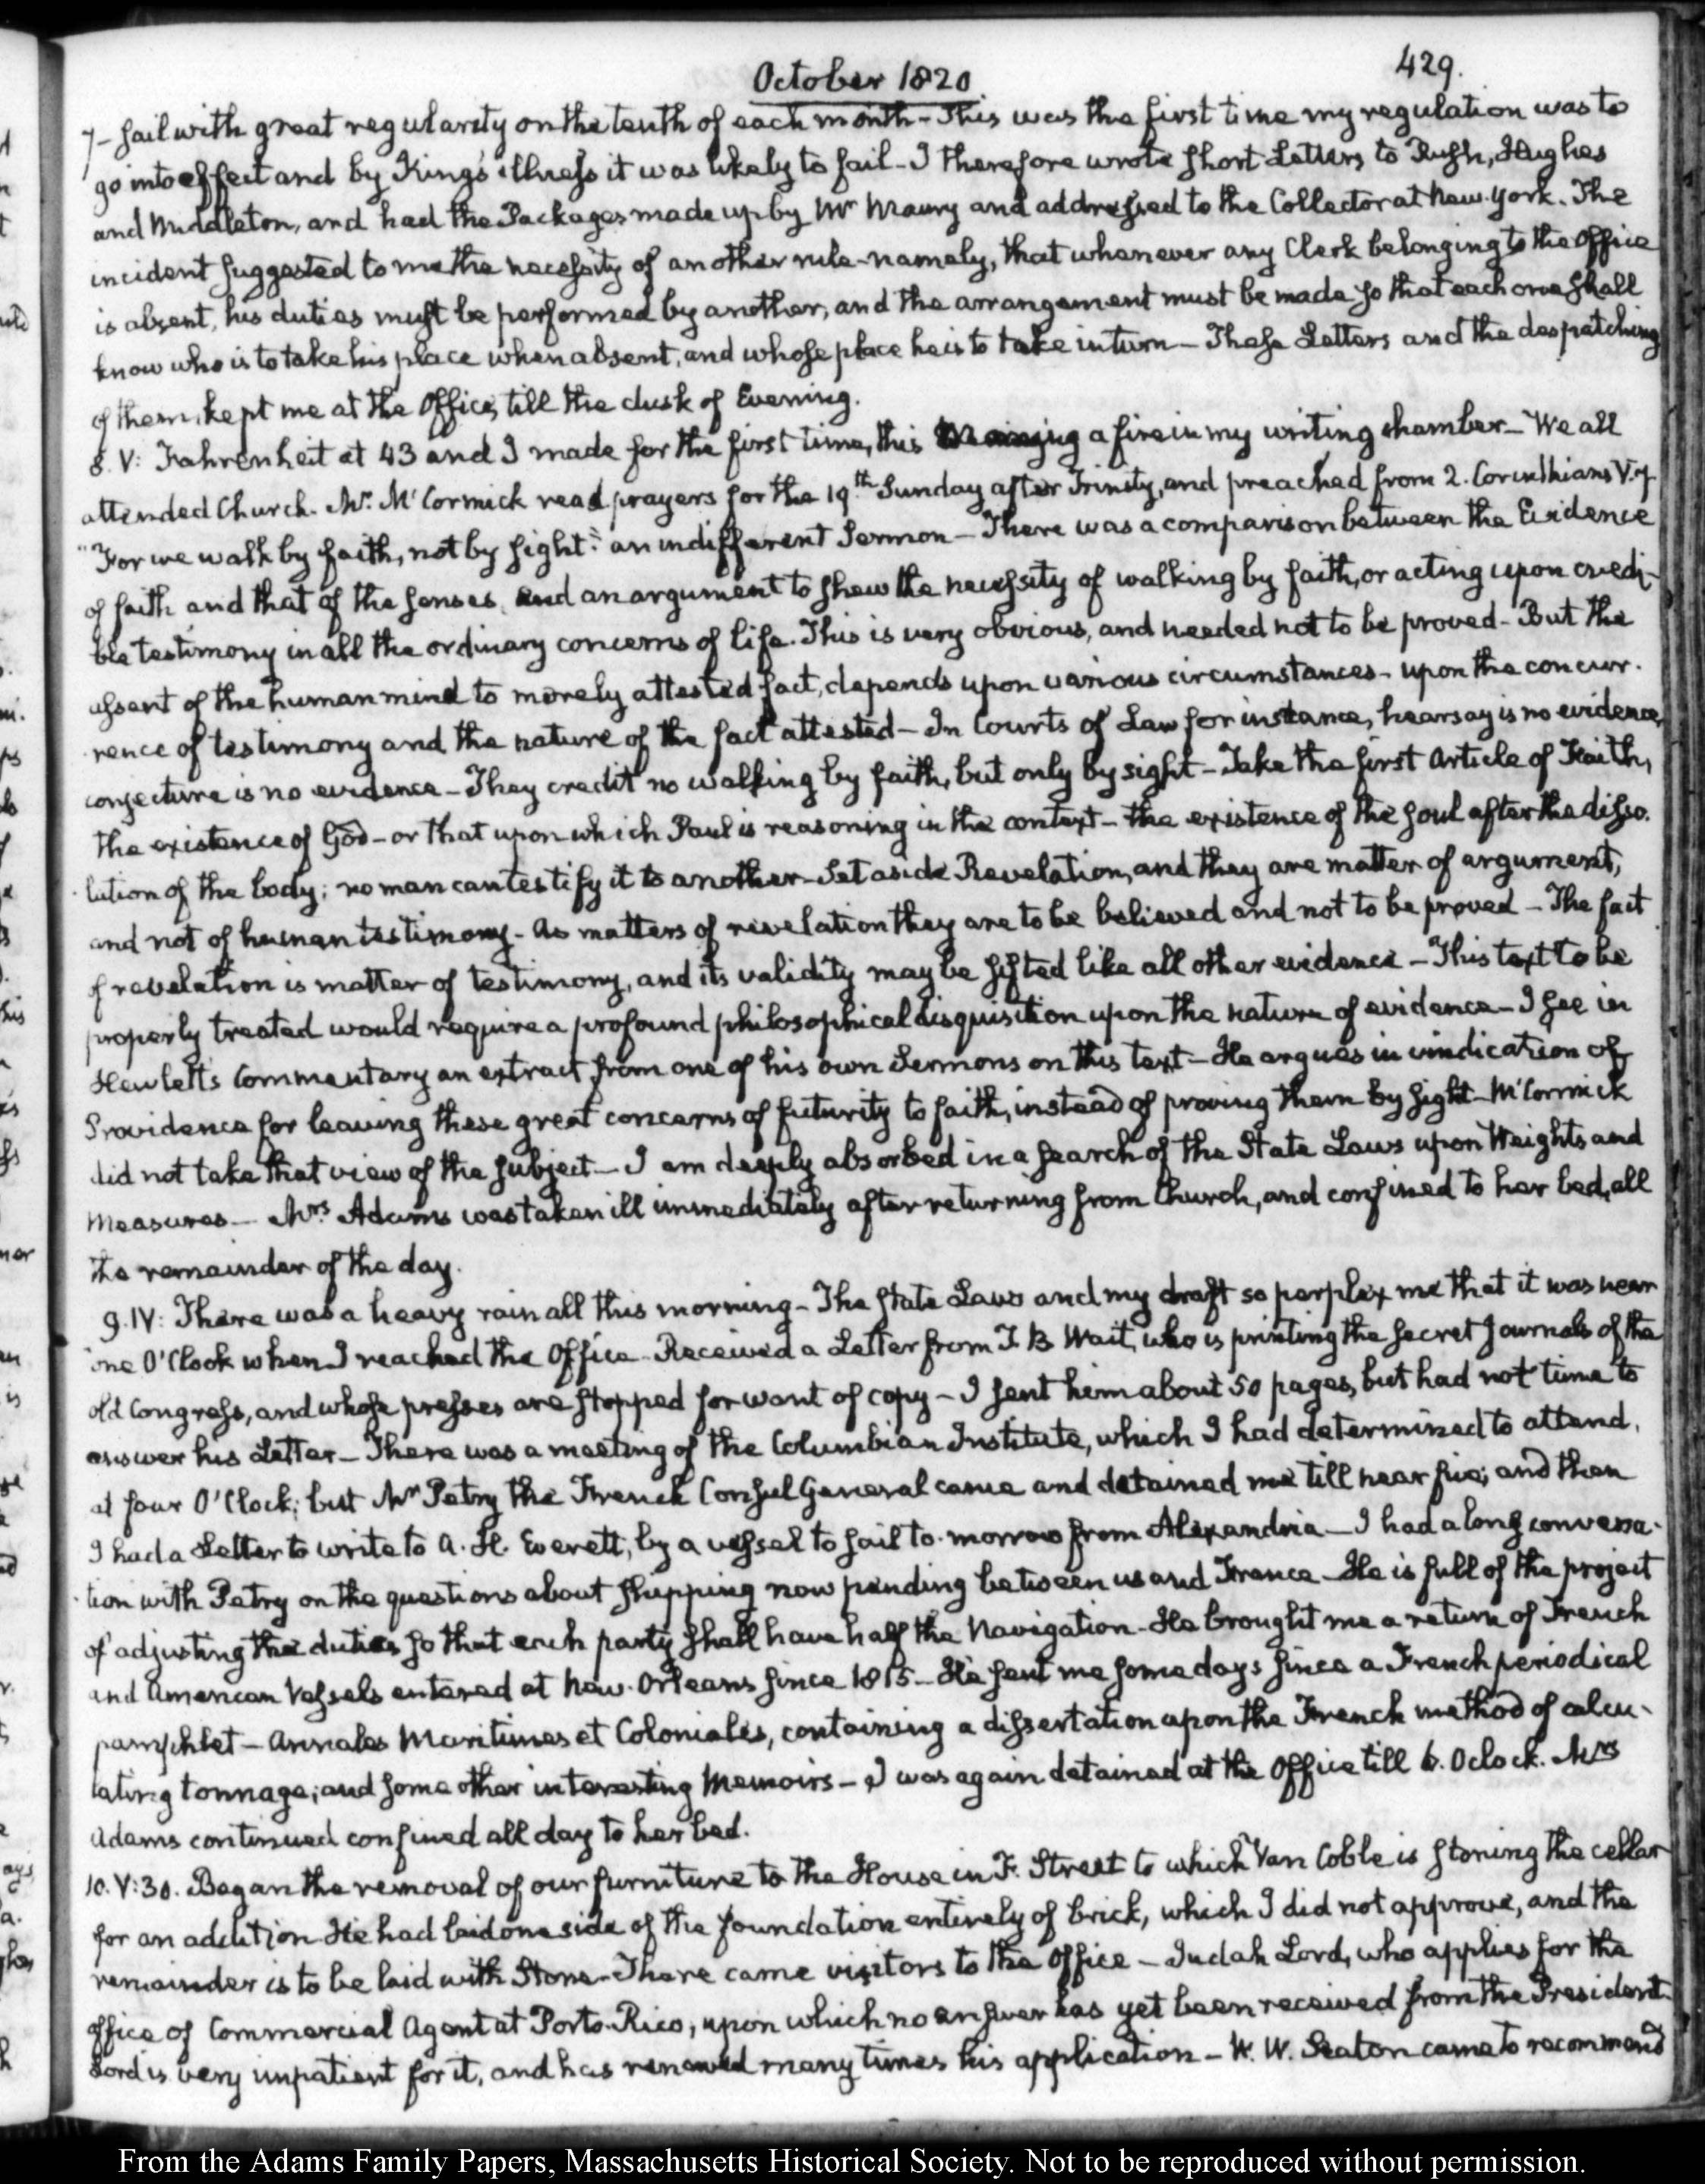 October 1820
429.
7- sail with great regularity on the tenth of each month - This was the first time my regulation was to
go into effect and by King's illness it was likely to fail - I therefore wrote short Letters to Rush, Hughes
and Middleton, and had the Packages made up by Mr Maury and addressed to the Collector at New-York. The
incident suggested to me the necessity of another rule - namely, that whenever any Clerk belonging to the Office
is absent, his duties must be performed by another, and the arrangement must be made so that each one shall
know who is to take his place when absent, and whose place he is to take in turn - These Letters and the despatching
of them, kept me at the Office, till the dusk of Evening.
8. V: Fahrenheit at 43 and I made for the first time, this Morning a fire in my writing chamber - We all
attended Church. Mr. McCormick read prayers for the 19th Sunday after Trinity, and preached from 2. Corinthians V. 7
"For we walk by faith, not by sight": an indifferent Sermon - There was a comparison between the Evidence
of faith and that of the senses, and an argument to shew the necessity of walking by faith, or acting upon credi-
ble testimony in all the ordinary concerns of life. This is very obvious, and needed not to be proved - But the
assent of the human mind to merely attested fact, depends upon various circumstances - upon the concur-
rence of testimony and the nature of the fact attested - In Courts of Law for instance, hearsay is no evidence,
conjecture is no evidence - They credit no walking by faith, but only by sight - Take the first Article of Faith,
the existence of God - or that upon which Paul is reasoning in the context - the existence of the soul after the disso-
lution of the body; no man can testify it to another - Set aside Revelation, and they are matter of argument,
and not of human testimony - As matters of revelation they are to be believed and not to be proved - The fact
of revelation is matter of testimony, and its validity may be sifted like all other evidence - This text to be
properly treated would require a profound philosophical disquisition upon the nature of evidence - I see in
Hewlett's Commentary an extract from one of his own Sermons on this text - He argues in vindication of
Providence for leaving these great concerns of futurity to faith, instead of proving them by sight - McCormick
did not take that view of the subject - I am deeply absorbed in a search of the State Laws upon Weights and
Measures - Mrs Adams was taken ill immediately after returning from Church, and confined to her bed, all
the remainder of the day.
9. IV: There was a heavy rain all this morning - The State Laws and my draft so perplex me that it was near
one O'Clock when I reached the Office - Received a Letter from T. B. Wait, who is printing the secret Journals of the
old Congress, and whose presses are stopped for want of copy - I sent him about 50 pages, but had not time to
answer his Letter - There was a meeting of the Columbian Institute, which I had determined to attend,
at four O'Clock; but Mr Petry the French Consul General came and detained me till near five; and then
I had a Letter to write to A. H. Everett, by a vessel to sail to-morrow from Alexandria - I had a long conversa-
tion with Petry on the questions about shipping now pending between us and France - He is full of the project
of adjusting the duties so that each party shall have half the Navigation - He brought me a return of French
and American Vessels entered at New-Orleans since 1815 - He sent me some days since a French periodical
pamphlet - Annales Maritimes et Coloniales, containing a dissertation upon the French method of calcu-
lating tonnage; and some other interesting Memoirs - I was again detained at the Office till 6. O clock. Mrs
Adams continued confined all day to her bed.
10. V: 30. Began the removal of our furniture to the House in F. Street to which Van Coble is stoning the cellar
for an addition - He had laid one side of the foundation entirely of brick, which I did not approve, and the
remainder is to be laid with Stone - There came visitors to the Office - Judah Lord, who applies for the
office of Commercial Agent at Porto-Rico, upon which no answer has yet been received from the President.
Lord is very impatient for it, and has renewed many times his application - W. W. Seaton came to recommend
From the Adams Family Papers, Massachusetts Historical Society. Not to be reproduced without permission.